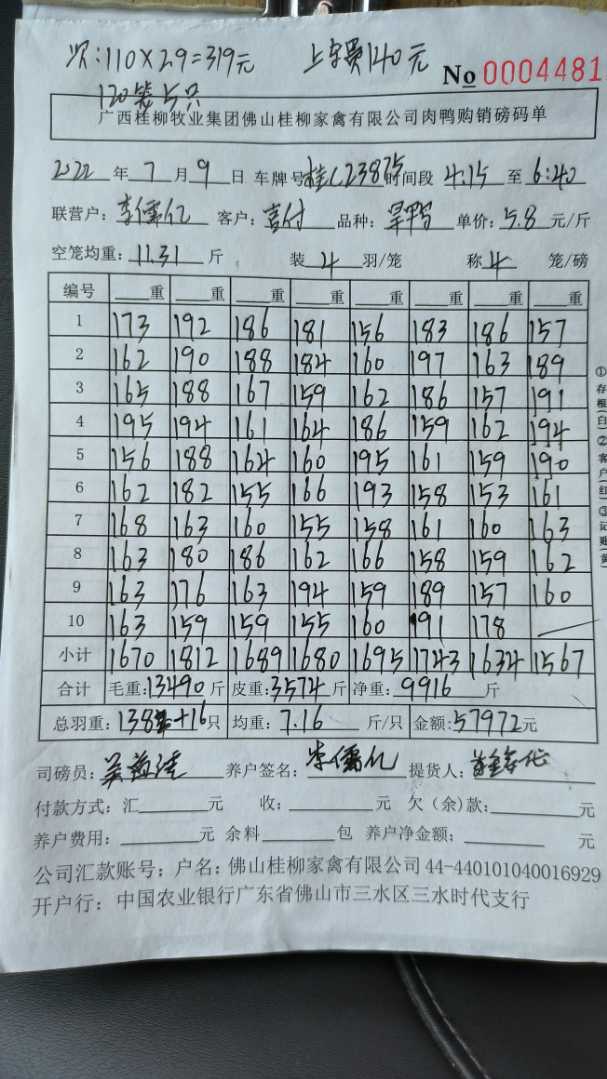 次:110×29=319元 上车费140元
No 0004481
120笼5只
广西桂柳牧业集团佛山桂柳家禽有限公司肉鸭购销磅码单
2022年7月9日 车牌号桂 时间段4:15至6:40
联营户:李儒亿 客户:喜付 品种: 单价:5.8元/斤
空笼均重:11.31斤 装4羽/笼 称4笼/磅
编号 重 重 重 重 重 重 重 重
1 173 192 186 181 156 183 186 157
2 162 190 188 184 160 197 163 189
3 165 188 167 159 162 186 157 191
4 195 194 161 164 186 159 162 194
5 156 188 164 160 195 161 159 190
6 162 182 155 166 193 158 153 161
7 168 163 160 155 158 161 160 163
8 163 180 186 162 166 158 159 162
9 163 176 163 194 159 189 157 160
10 163 159 159 155 160 191 178
小计 1670 1812 1689 1680 1695 1743 1634 1567
合计 毛重:13490斤 皮重:3574斤 净重:9916斤
总羽重: +16只 均重:7.16斤/只 金额:57972元
司磅员: 养户签名:李儒亿 提货人:
付款方式:汇 元 收: 元 欠(余)款: 元
养户费用: 元 余料 包 养户净金额: 元
公司汇款账号:户名:佛山桂柳家禽有限公司 44-440101040016929
开户行:中国农业银行广东省佛山市三水区三水时代支行
①存根(白)②客户(红)③记账(黄)